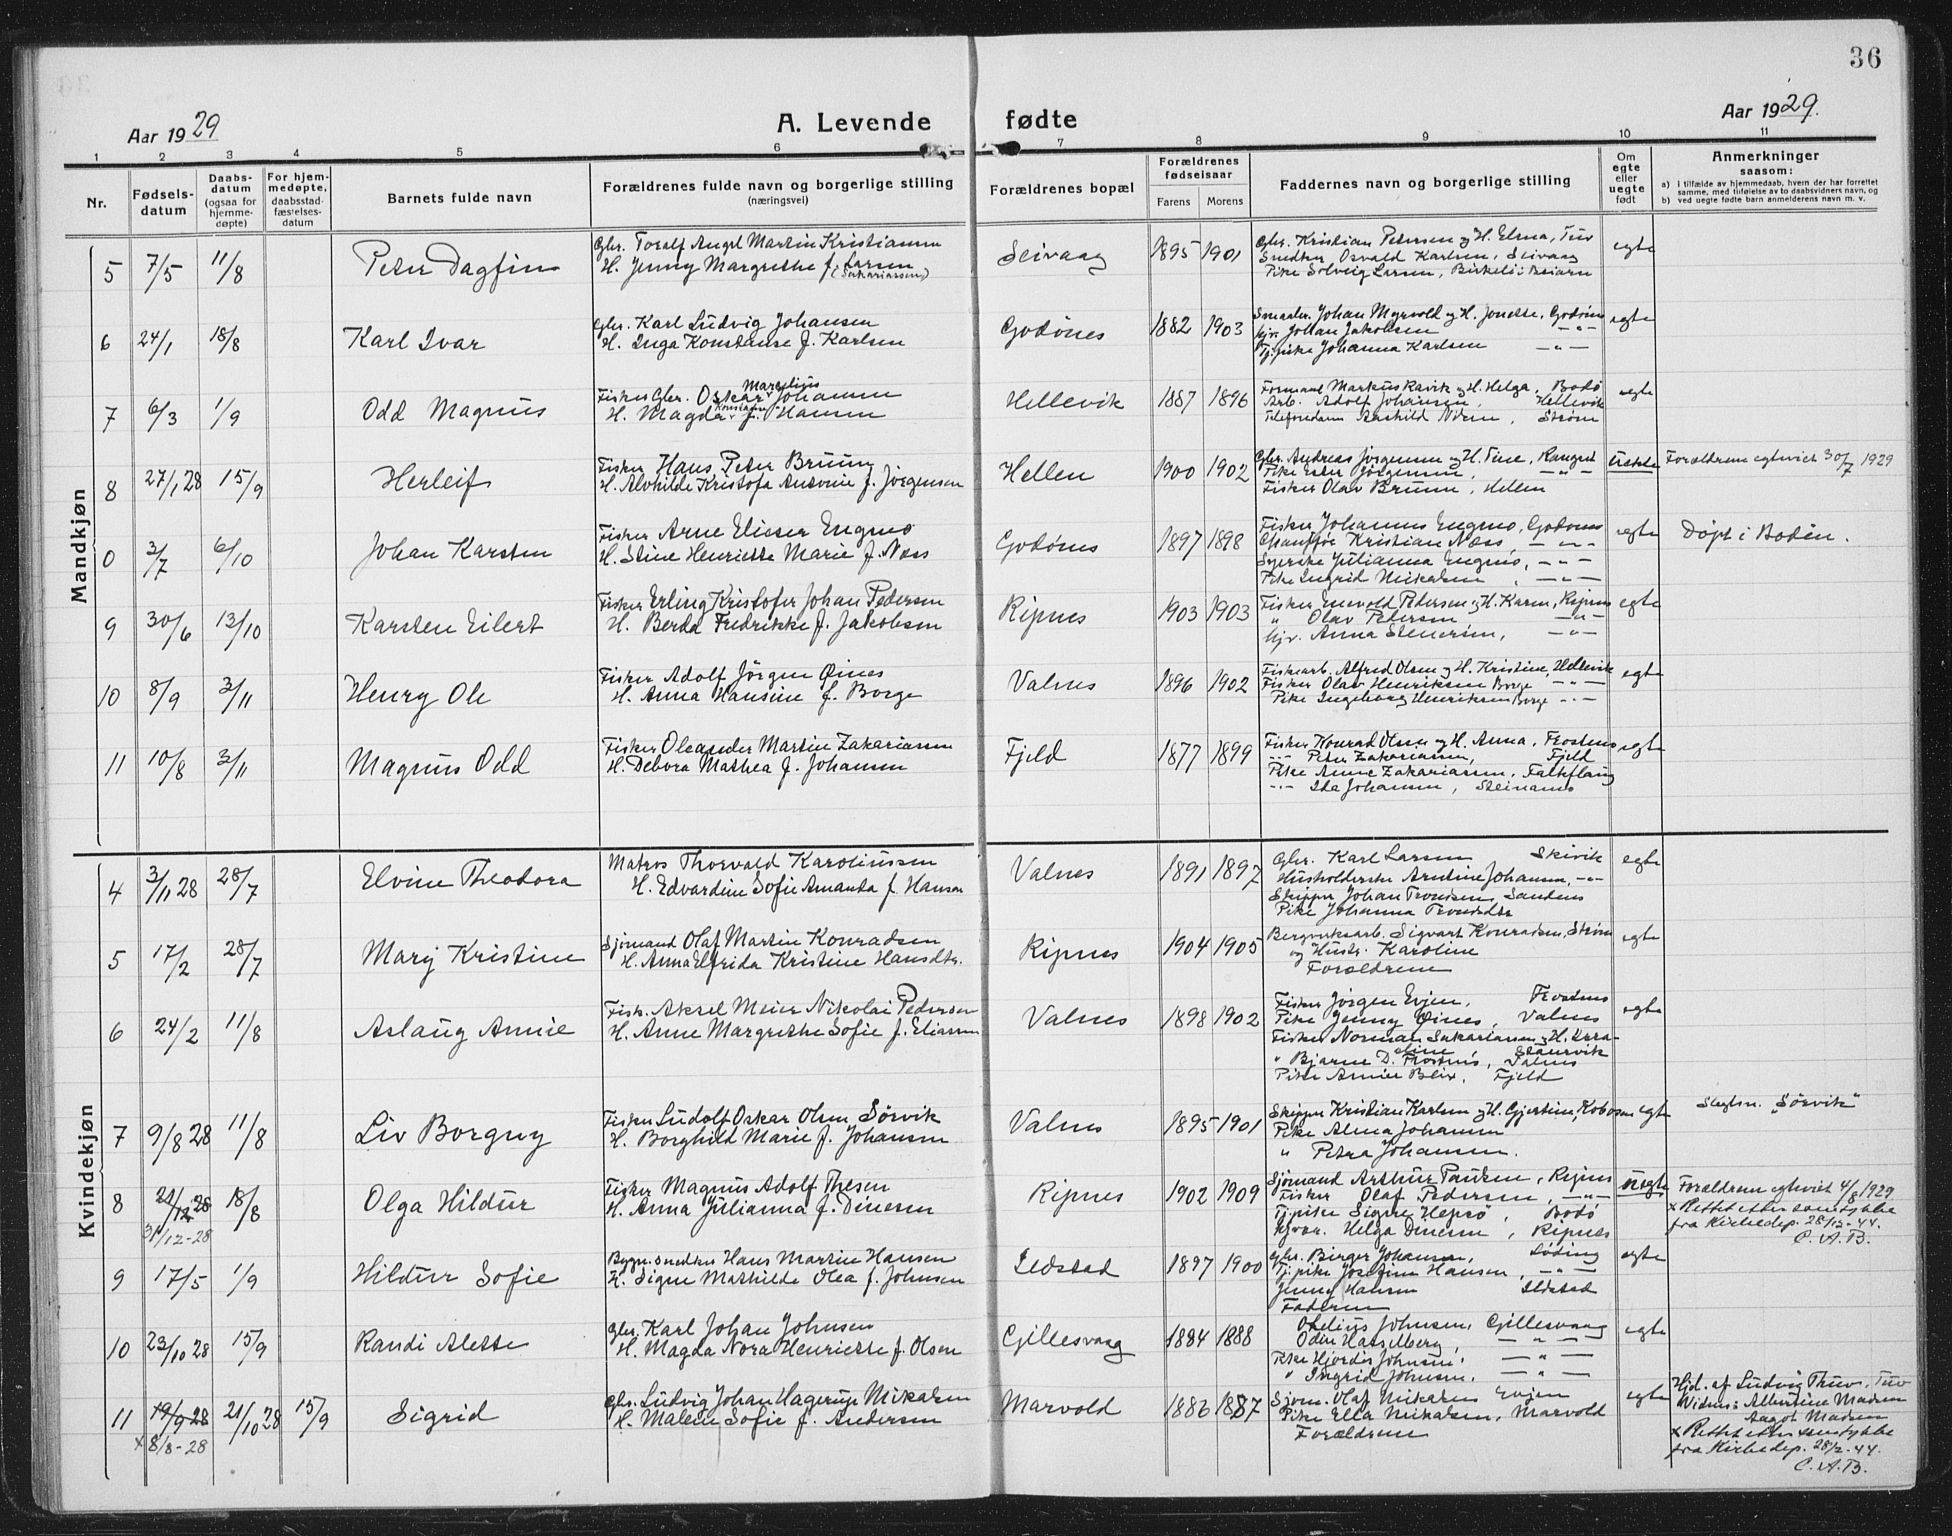 36
Aar 1929
A. Levende fødte
Aar 1929.
1 2 3 4 5 6 7 8 9 10 11
Nr.
Fødsels-
datum
Daabs-
datum
(ogsaa for
hjemme-
døpte)
For hjem-
medøpte,
daabsstad-
fæstelses-
datum
Barnets fulde navn
Forældrenes fulde navn og borgerlige stilling
(næringsvei)
Forældrenes bopæl
Forældrenes
fødselsaar
Farens Morens
Faddernes navn og borgerlig stilling
Om
egte
eller
uegte
født
Anmerkninger
saasom:
a) i tilfælde av hjemmedaab, hvem der har forrettet
samme, med tilføielse av to daabsvidners navn, og
b) ved uegte fødte barn anmelderens navn m. v.
Mandkjøn
5 7/5 11/8 Peter Dagfin
Gbr. Toralf Angel Martin Kristiansen
H. Jenny Margrethe f. Larsen
(Sakariassen)
Seivaag 1895 1901
Gbr. Kristian Petersen og H. Elena, Tuv
Snedker Osvald Karlsen, Seivaag
Pike Solveig Larsen, Birkeli i Beiarn
egte
6 24/1 18/8 Karl Ivar
Gbr. Karl Ludvig Johansen
H. Inga Konstanse f. Karlsen
Godønes 1882 1903
Smaabr. Johan Myrvold og H. Jonette, Godønes
Gjv. Johan Jakobsen — " —
Tj.pike Johanna Karlsen — " —
egte
7 6/3 1/9 Odd Magnus
Marselius
Fisker Gbr. Oskar Johansen
H. Magda f. Hansen
Hellevik 1887 1896
Formand Markus Ravik og H. Helga, Bodø
Arb. Adolf Johansen, Hellevik
Telefondam Aashild Nilsen, Strøm
egte
8 27/1 28 15/9 Herleif
Fisker Hans Peter Bruun
H. Alvhilde Kristofa Antonie f. Jørgensen
Hellen 1900 1902
Gbr. Andreas Jørgensen og H. Tine,
Pike Ester Jørgensen, — " —
Fisker Olav Bruun, Hellen
Uekte
Forældrene egteviet 30/7 1929
0 3/7 6/10 Johan Karsten
Fisker Arne Elieser Engmo
H. Stine Henriette Marie f. Næss
Godønes 1897 1898
Fisker Johannes Engmo, Godønes
Chauffør Kristian Næss, — " —
Syerske Julianna Engmo, — " —
Pike Ingrid Mikalsen, — " —
egte
Døpt i Bodin.
9 30/6 13/10 Karsten Eilert
Fisker Erling Kristofer Johan Pedersen
H. Berda Fredrikke f. Jakobsen
Ripnes 1903 1903
Fisker Enevold Pedersen og H. Karen, Ripnes
" Olav Petersen, — " —
Gjv. Anna Stenersen, — " —
egte
10 8/9 3/11 Henry Ole
Fisker Adolf Jörgen Øines
H. Anna Hansine f. Borge
Valnes 1896 1902
Fiskearb. Alfred Olsen og H. Kristine, Hellevik
Fisker Olav Henriksen Borge — " —
Pike Ingeborg Henriksen Borge — " —
egte
11 10/8 3/11 Magnus Odd
Fisker Oleander Martin Zakariassen
H. Debora Mathea f. Johansen
Fjeld 1877 1899
Fisker Konrad Olsen og H. Anna, Frostnes
— " — Peter Zakariassen, Fjeld
Pike Anne Zakariassen, Falkflaug
— " — Ida Johansen, Steinanes
egte
Kvindekjøn
4 3/11 28 28/7 Elvine Theodora
Matros Thorvald Karoliussen
H. Edvardine Sofie Amanda f. Hansen
Valnes 1891 1897
Gbr. Karl Larsen Skivik
Husholderske Arntine Johansen, — " —
Skipper Johan Trondsen, Sandnes
Pike Johanna Trondsdtr
egte
5 17/2 28/7 Mary Kristine
Sjömand Olaf Martin Konradsen
H. Anna Elfrida Kristine Hansdtr.
Ripnes 1904 1905
Bergverksarb. Sigvart Konradsen, Strøm
og Hustr. Karoline
Forældrene
egte
6 24/2 11/8 Aslaug Annie
Fisk. Aksel Meier Nikolai Pedersen
H. Anne Margrethe Sofie f. Eliassen
Valnes 1898 1902
Fisker Jørgen Evjen, Frostnes
Pike Jenny Øines, Valnes
Fisker Norman Sakariassen og H. Petra-
" Bjarne D. Frostnes, Valnes
Pike Annie Blix, Fjeld
egte
7 9/8 28 11/8 Liv Borgny
Fisker Ludolf Oskar Olsen Sørvik
H. Borghild Marie f. Johansen
Valnes 1895 1901
Skipper Kristian Karlsen og H. Gjertine,
Pike Alma Johansen
" Petra Johansen.
egte
Slegtsn. "Sørvik"
8 21/12 28 18/8 Olga Hildur
31/12-28
Fisker Magnus Adolf Thesen
H. Anna Julianna f. Dinesen
Ripnes 1902 1909
Sjømand Arthur Paulsen, Ripnes
Fisker Olaf Pedersen, — " —
Tj.pike Signe Hepsø, Bodø
Gjv. Helga Dinesen, Ripnes
Uegte
Forældrene egteviet 4/8 1929
x Rettet etter samtykke
fra Kirkedep. 28/2-44.
C.A.B.
9 17/5 1/9 Hildur Sofie
Bygn.snedker Hans Martin Hansen
H. Signe Mathilde Olea f. Johnsen
Ildstad 1897 1900
Gbr. Birger Johansen, Løding
Tj.pike Josefine Hansen, — " —
Jenny Hansen Ildstad
Faderen
egte
10 23/10 28 15/9 Randi Alette
Gbr. Karl Johan Johnsen
H. Magda Nora Henriette f. Olsen
Gillesvaag 1884 1888
Ovelius Johnsen, Gillesvaag
Odin Hasselberg, — " —
Pike Hjordis Johnsen, — " —
" Ingrid Johnsen, — " —
egte
11 19/9 28 21/10 28 15/9 Sigrid
x 8/8-28
Gbr. Ludvig Johan Hagerup Mikalsen
H. Malene Sofie f. Andersen
Marvold 1886 1887
Sjøm. Olaf Mikalsen Evjen
Pike Ella Mikalsen, Marvold
Forældrene
egte
Hjd. af Ludvig Thuv, Tuv
Vidner: Albertine Madsen
Aagot Madsen
x Rettet etter samtykke
fra Kirkedep. 28/2-44.
C.A.B.